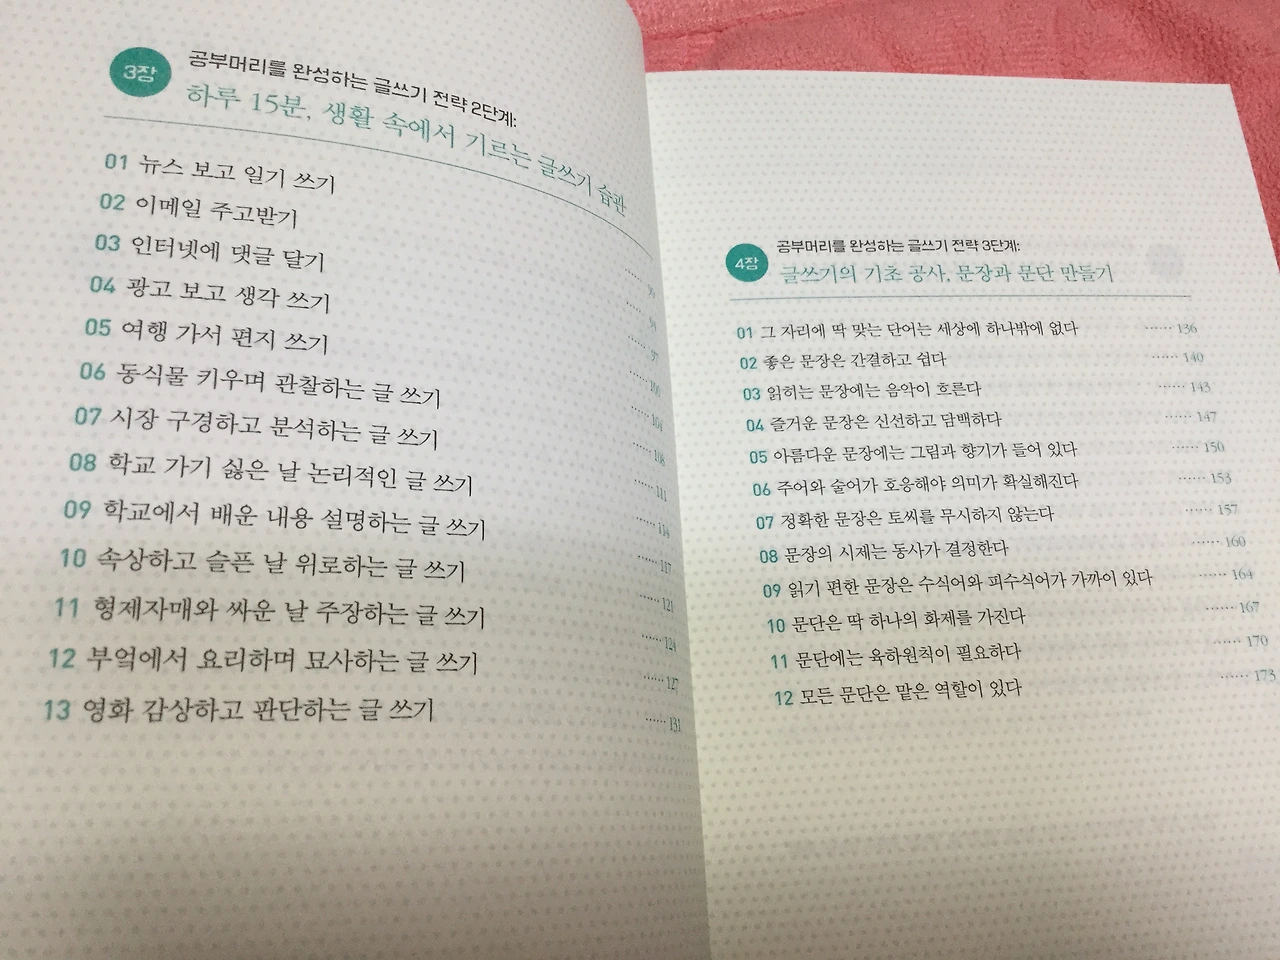 3장
공부머리를 완성하는 글쓰기 전략 2단계:
하루 15분, 생활 속에서 기르는 글쓰기 습관
01 뉴스 보고 일기 쓰기
02 이메일 주고받기
03 인터넷에 댓글 달기
04 광고 보고 생각 쓰기
05 여행 가서 편지 쓰기
06 동식물 키우며 관찰하는 글 쓰기
07 시장 구경하고 분석하는 글 쓰기 ······ 108
08 학교 가기 싫은 날 논리적인 글 쓰기 ······ 111
09 학교에서 배운 내용 설명하는 글 쓰기 ······ 114
10 속상하고 슬픈 날 위로하는 글 쓰기 ······ 117
11 형제자매와 싸운 날 주장하는 글 쓰기 ······ 121
12 부엌에서 요리하며 묘사하는 글 쓰기 ······ 127
13 영화 감상하고 판단하는 글 쓰기 ······ 131
4장
공부머리를 완성하는 글쓰기 전략 3단계:
글쓰기의 기초 공사, 문장과 문단 만들기
01 그 자리에 딱 맞는 단어는 세상에 하나밖에 없다 ······ 136
02 좋은 문장은 간결하고 쉽다 ······ 140
03 읽히는 문장에는 음악이 흐른다 ······ 143
04 즐거운 문장은 신선하고 담백하다 ······ 147
05 아름다운 문장에는 그림과 향기가 들어 있다 ······ 150
06 주어와 술어가 호응해야 의미가 확실해진다 ······ 153
07 정확한 문장은 토씨를 무시하지 않는다 ······ 157
08 문장의 시제는 동사가 결정한다 ······ 160
09 읽기 편한 문장은 수식어와 피수식어가 가까이 있다 ······ 164
10 문단은 딱 하나의 화제를 가진다 ······ 167
11 문단에는 육하원칙이 필요하다 ······ 170
12 모든 문단은 맡은 역할이 있다 ······ 173